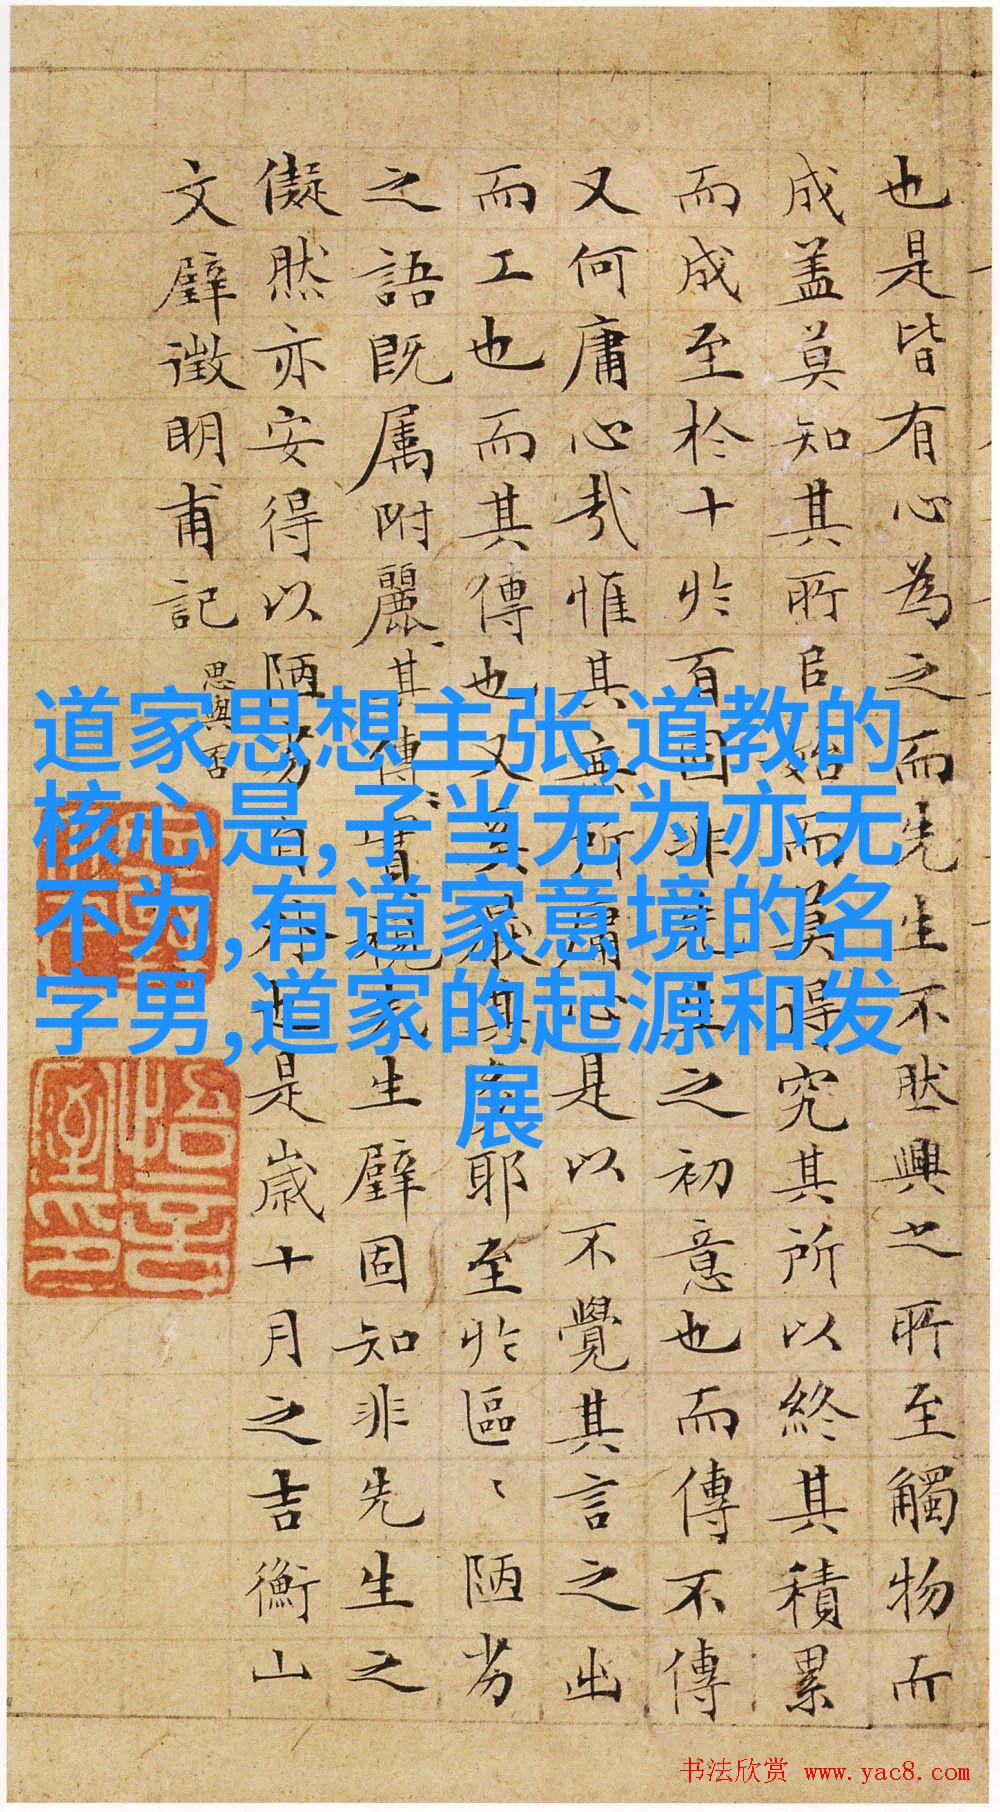 也是皆有心為之而先生不然興之所至觸物而
成盖莫知其所自始而莫得究其所以終其積累
而成至於十於百固非之初意也而傳不傳
又何庸心哉惟其無所庸心是以不覺其言之出
而工也而其傳也又其多耶至於區〻陋劣
之語既属附麗其傳實生璧固知非先生之
儗然亦安得以陋劣自外也是歲十月之吉衡山
文璧徵明甫記
道家思想主张,道教的
核心是,子当无为亦无
不为,有道家意境的名
字男,道家的起源和发
展
书法欣赏 www.yac8.com